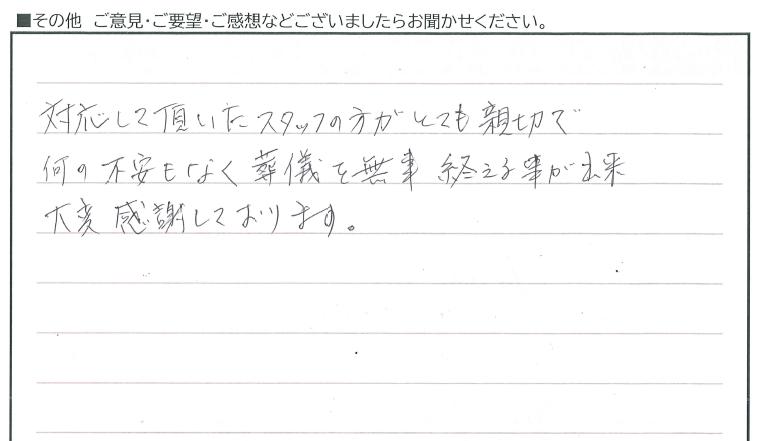 ■その他 ご意見・ご要望・ご感想などございましたらお聞かせください。
対応して頂いたスタッフの方がとても親切で
何の不安もなく葬儀を無事終える事が出来
大変感謝しております。